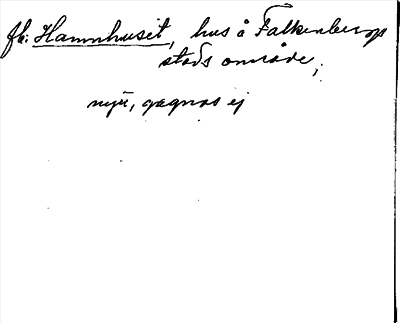 fk: Hamnhuset, hus å Falkenbergs
stads område;
nytt, gagnas ej